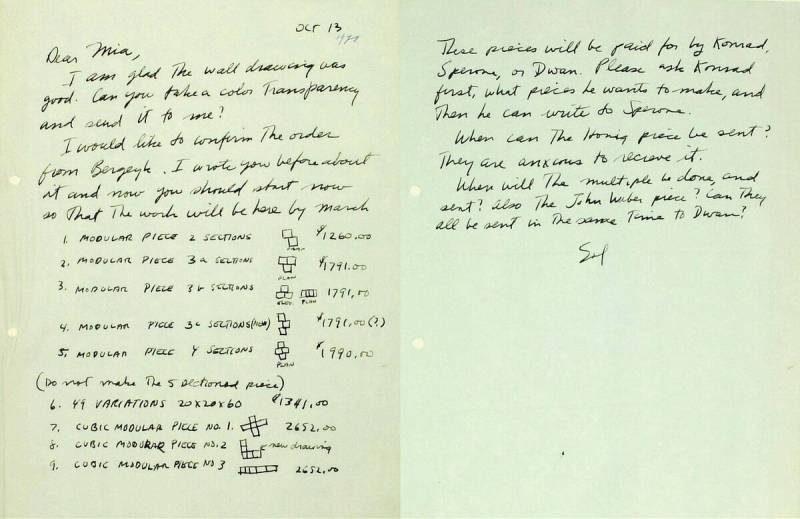 OCT 13
Dear Mia,
I am glad The wall drawing was
good. Can you take a color Transparency
and send it to me?
I would like to confirm The order
from Bergeyk. I wrote you before about
it and now you should start now
so That The work will be here by March
1. MODULAR PIECE 2 SECTIONS $1260.00
PLAN
2. MODULAR PIECE 3a SECTIONS $1791.00
PLAN
3. MODULAR PIECE 3b SECTIONS 1791.00
ELEV. PLAN
4. MODULAR PIECE 3c SECTIONS (NEW) $1791.00 (?)
5. MODULAR PIECE 4 SECTIONS $1990.00
PLAN
(Do not make The 5 sectioned piece)
6. 49 VARIATIONS 20x20x60 $1341.00
7. CUBIC MODULAR PIECE NO. 1. 2652.00
8. CUBIC MODULAR PIECE NO. 2 new drawing
9. CUBIC MODULAR PIECE NO 3 2652.00
These pieces will be paid for by Konrad,
Sperone, or Dwan. Please ask Konrad
first, what pieces he wants to make, and
Then he can write to Sperone.
When can The Honig piece be sent?
They are anxious to recieve it.
When will The multiple be done, and
sent? Also The John Weber piece? Can They
all be sent in The same Time to Dwan?
Sol